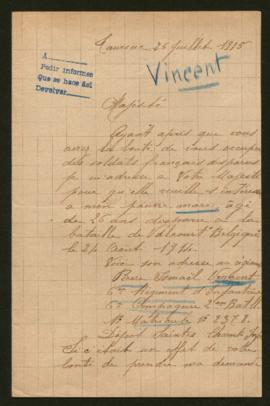 A
Pedir informes
Que se hace así
Devolver
26 Juillet 1915
Vincent
Majesté
Ayant appris que vous
avez la bonté de vous occuper
des soldats français disparus
je m'adresse à Votre Majesté
pour qu'elle veuille s'intéresser
à mon pauvre mari âgé
de 26 ans disparu à la
bataille de Belgique
le 24 Août 1914.
Voici son adresse
Vincent
6me Régiment d'Infanterie
6e Compagnie 2me Bataill
No Matricule 2372.
Dépôt Saintes Charente Infre
Si c'était un effet de votre
bonté de prendre ma demande